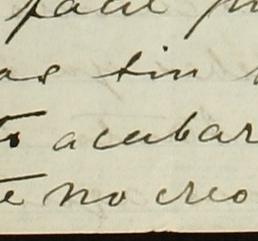 facil
as sin
acabar
te no creo